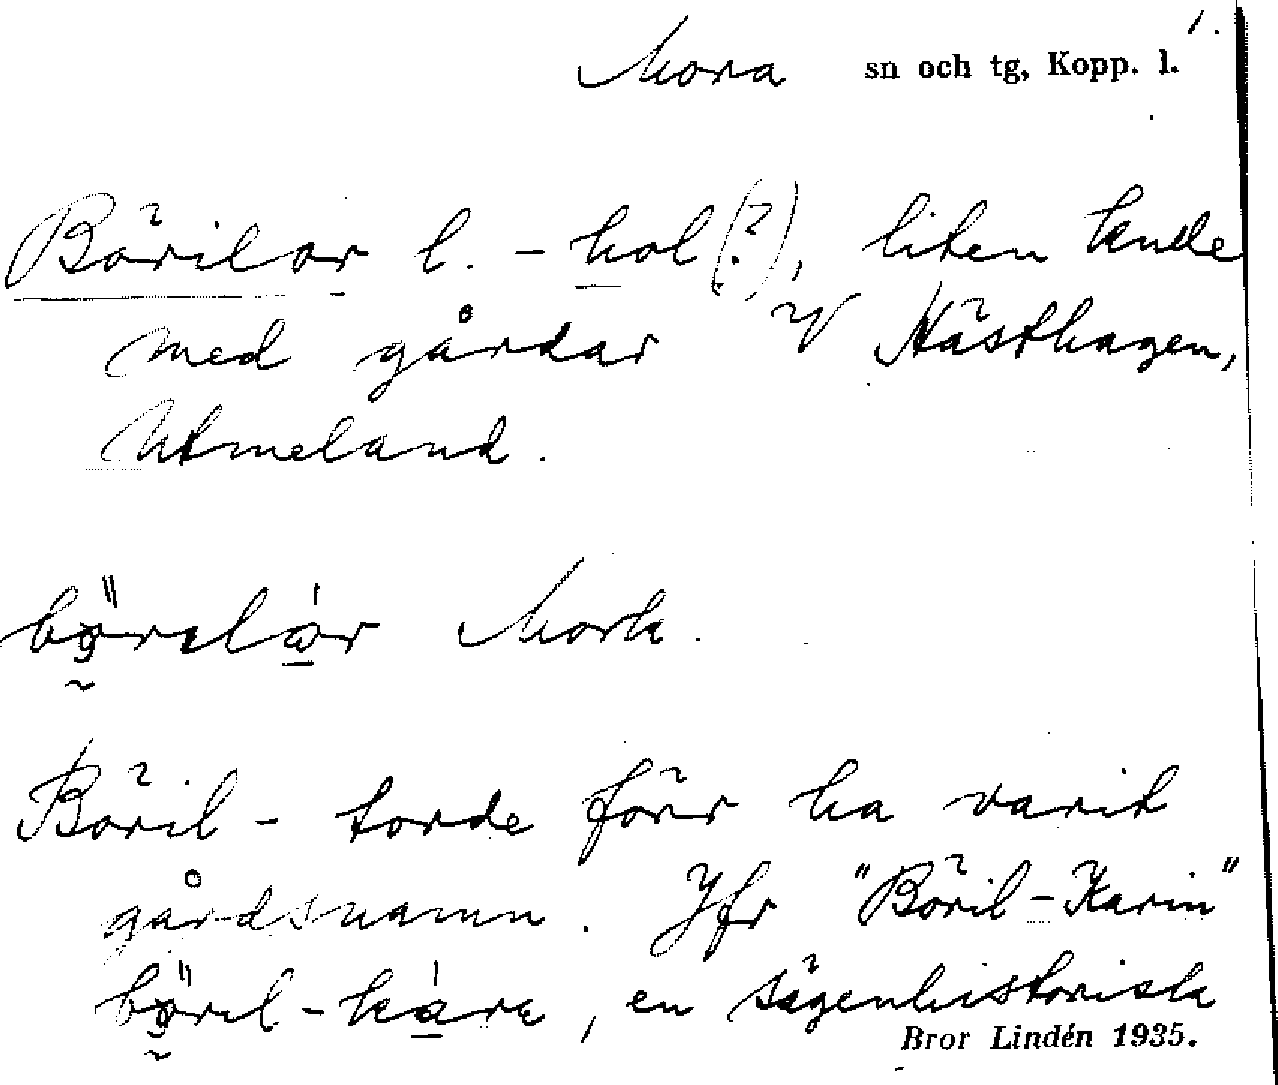 1.
Mora sn och tg, Kopp. l.
Börilor l. -hol (?), liten kulle
med gårdar V Hästhagen,
Utmeland.
Mork.
Böril- torde förr ha varit
gårdsnamn. Jfr "Böril-Karin"
en sägenhistorisk
Bror Lindén 1935.